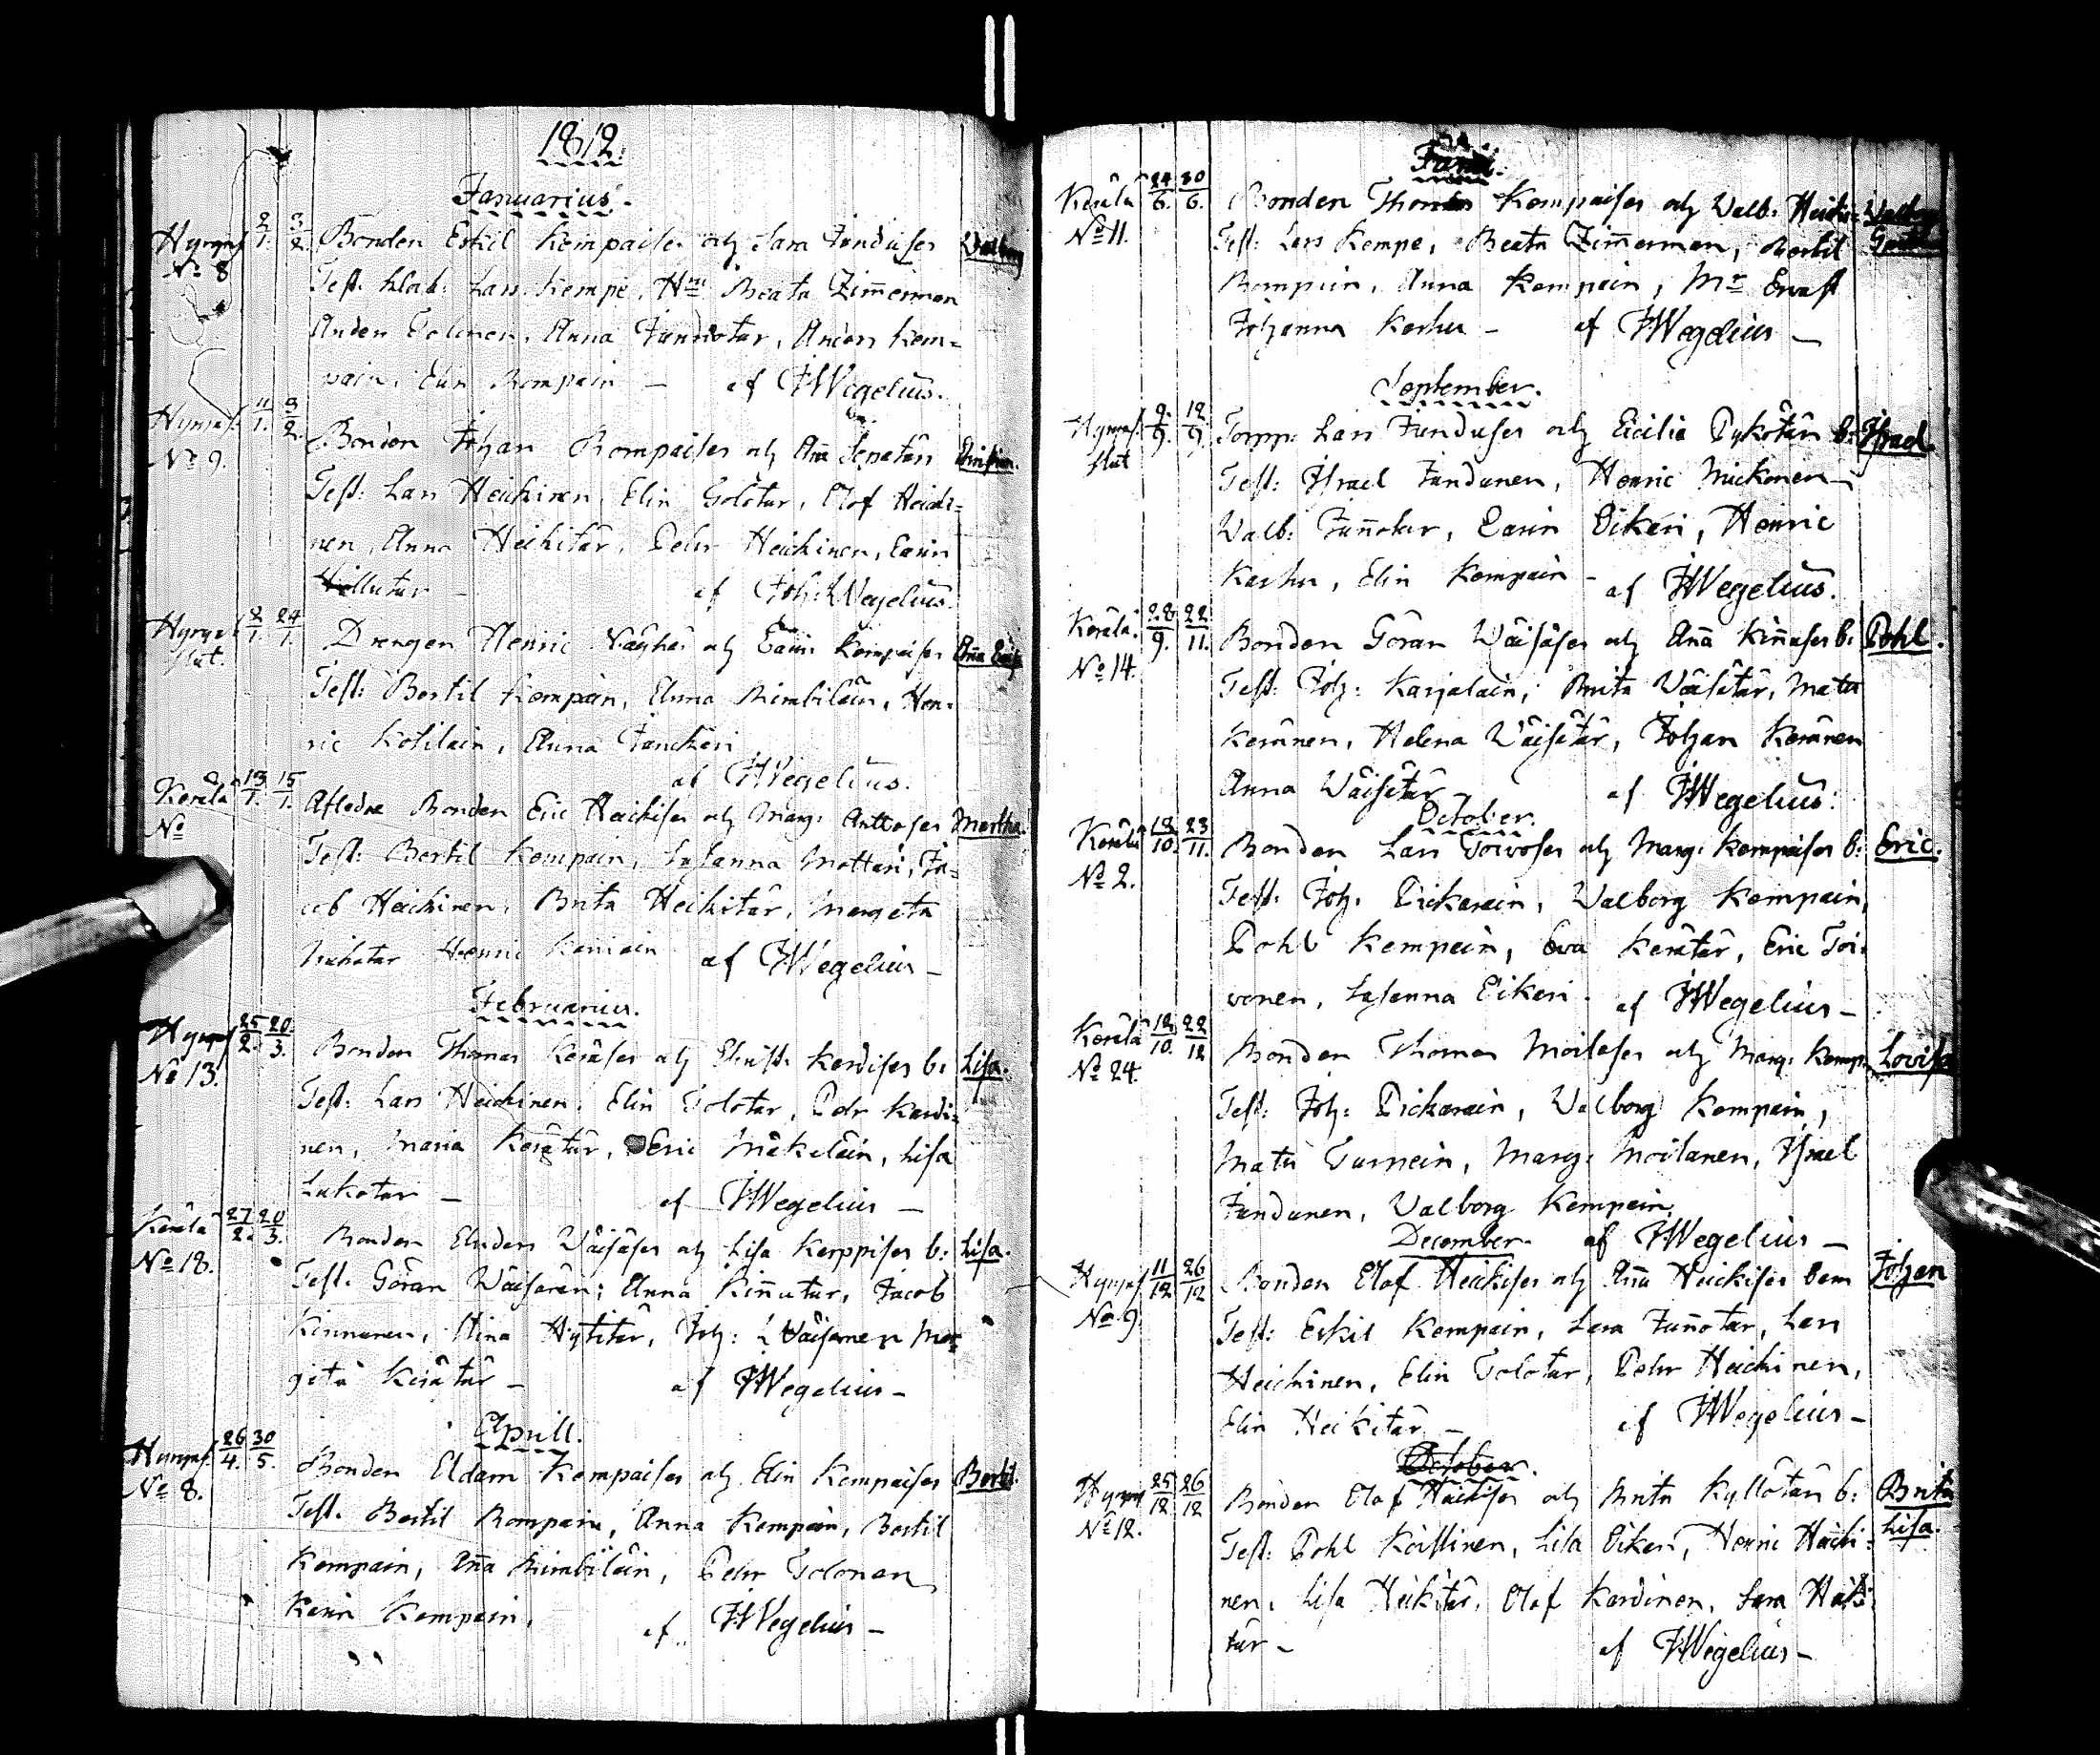 1812.
Januarius.
Hyrynf. 2/1. 3/2. Bonden Eskil Kempaises och Sara Junduses Valborg
No 8 Test. Klock. Lars Kempe, Beata Zimerman
Anders Tolonen, Anna Junnotar, Anders Kem=
pain, Elin Kempain — af JWegelius.
Hyrynf. 11/1. 3/2. Bonden Johan Rompaises och Aña
No 9. Test: Lars Heickinen, Elin Golotar, Olof Heicki=
nen, Anna Heikitar, Pehr Heickinen, Carin
Hillutar — af Joh: Wegelius.
Hyryns. 2/1. 24/1. Drengen Henric och Carin Kempaises Aña
slut. Test: Bertil Kempain, Anna Rimbiläin, Hen=
ric Kotilain, Anna
af JWegelius.
Kerälä 13/1. 15/1. Afledne Bonden Eric Heickises och Marg: Anttoses Martha.
No Test: Bertil Kempain, Susanna Mattari, Ja=
cob Heickinen, Brita Heickitar, Margeta
Henric af JWegelius —
Februarius.
Hyrynf 25/2. 20/3. Bonden Thomas Keräses och Christ: Kardises b: Lisa.
No 13. Test: Lars Heickinen, Elin Tolotar, Pehr Kardi=
nen, Maria Kerätär, Eric Mäkeläin, Lisa
Lukotar — af JWegelius —
Kerälä 27/2. 20/3. Bonden Anders Wäisäses och Lisa Karppises b: Lisa.
No 18. Test: Göran Wäisänen; Anna Kiñutar, Jacob
Kinnunen, Stina Hytitär, Joh: Wäisänen Mar=
geta Kerätär — af JWegelius —
Aprill.
Hyrynf. 26/4. 30/5. Bonden Adam Kempaises och Elin Kempaises Bertil
No 8. Test. Bertil Rompain, Anna Kempain, Bertil
Kempain, Aña Rimbiläin, Pehr Tolonen
Karin Kempain, af JWegelius —
Kerälä 24/6. 30/6. Bonden Thomas Kempaises och Walb: Valborg
No 11. Test: Lars Kempe, Beata Zimerman, Bertil
Rompain, Anna Kempain, Mr Ervast
Johanna Karhu — af JWegelius —
September.
Hyrynf. 9/9. 12/9. Torpp: Lars Junduses och Cicilia Pykötär b: Israel
slut Test: Israel Jundunen, Henric Mickonen —
Valb: Juñotar, Carin Eikeri, Henric
Karhu, Elin Kempain — af JWegelius.
Kerälä. 28/9. 22/11. Bonden Göran Wäisäses och Aña Kiñuses b: Pohl.
No 14. Test: Joh: Karjalain, Brita Wäisätär, Mats
Keränen, Helena Wäisätär, Johan Keränen
Anna Wäisätär — af JWegelius:
October.
Kerälä 12/10. 23/11. Bonden Lars Toivoses och Marg: Kempaises b: Eric.
No 2. Test: Joh: Pickarain, Valborg Kempain,
Pohl Kempain, Eva Kerätär, Eric Toi=
vonen, Susanna Eikeri. af JWegelius —
Kerälä 12/10. 22/12 Bonden Thomas Moilases och Marg: Kemp. Lovisa
No 24. Test: Joh: Pickarain, Valborg Kempain,
Mats Turpein, Marg: Moilanen, Israel
Jundunen, Valborg Kempain,
December. af JWegelius —
Hyrynf. 11/12 26/12 Bonden Olof Heickises och Aña Heickises barn Johan
No 9 Test: Eskil Kempain, Sara Juñotar, Lars
Heickinen, Elin Tolotar, Pehr Heickinen,
Elin Heikitar — af JWegelius —
October.
Hyrynf 25/12 26/12 Bonden Olof Heickises och Brita Kyllötär b: Brita
No 12. Lisa.
Test: Pohl Keistinen, Lisa Eikeri, Henric Heicki=
nen, Lisa Heickitar, Olof Kardinen, Sara Heicki
tär — af JWegelius —